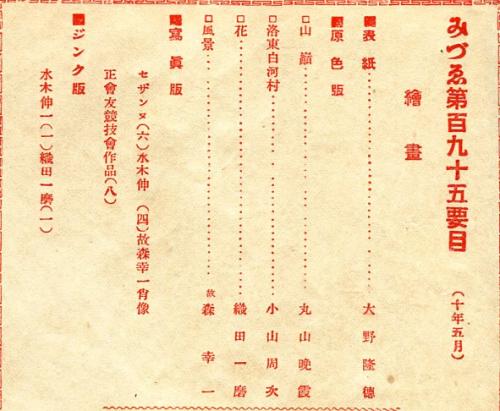 みづゑ第百九十五要目
(十年五月)
繪畫
■表紙……………………大野隆德
■原色版
□山巓……………………丸山晩霞
□洛東白河村……………小山周次
□花………………………織田一磨
□風景……………………故森幸一
■寫眞版
セザンヌ(六)水木伸 (四)故森幸一肖像
正會友競技會作品(八)
■ジンク版
水木伸一(一)織田一磨(一)